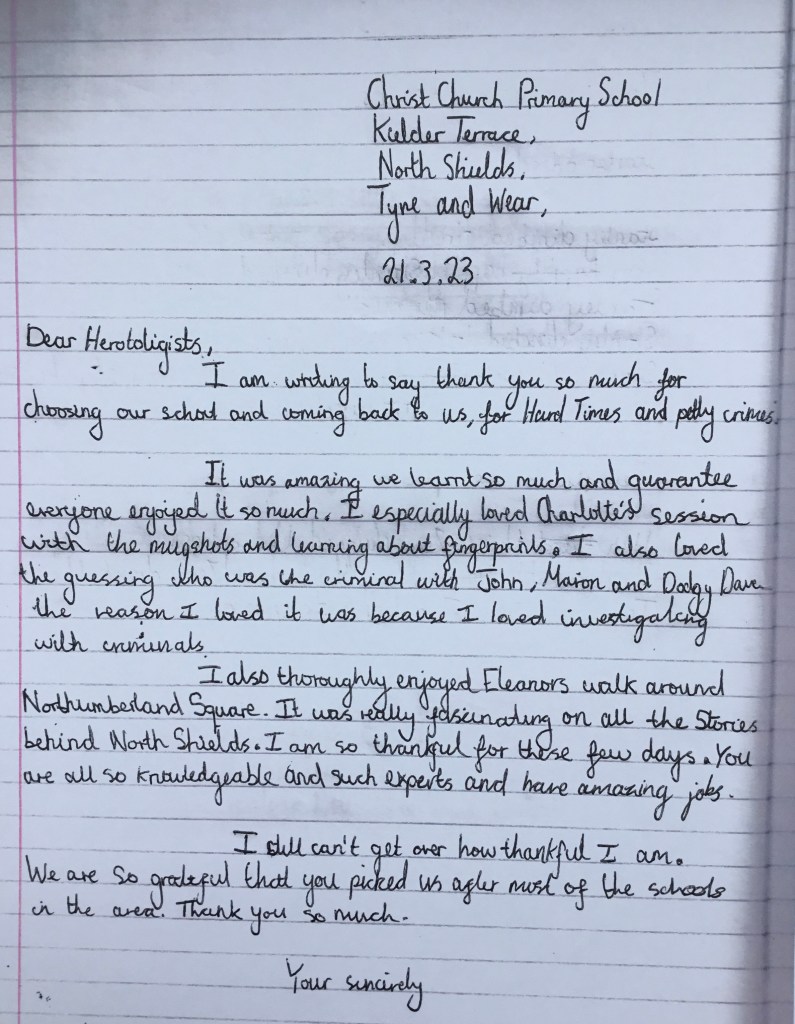 Christ Church Primary School
Kielder Terrace,
North Shields,
Tyne and Wear,
21.3.23
Dear Herotoligists,
I am writing to say thank you so much for
choosing our school and coming back to us, for Hard Times and petty crimes.
It was amazing we learnt so much and guarantee
everyone enjoyed it so much. I especially loved Charlotte's session
with the mugshots and learning about fingerprints. I also loved
the guessing who was the criminal with John, Marion and Dodgy Dave
the reason I loved it was because I loved investigating
with criminals.
I also thoroughly enjoyed Eleanors walk around
Northumberland Square. It was really fascinating on all the Stories
behind North Shields. I am so thankful for these few days. You
are all so knowledgeable and such experts and have amazing jobs.
I still can't get over how thankful I am.
We are so grateful that you picked us after most of the schools
in the area. Thank you so much.
Your sincirely